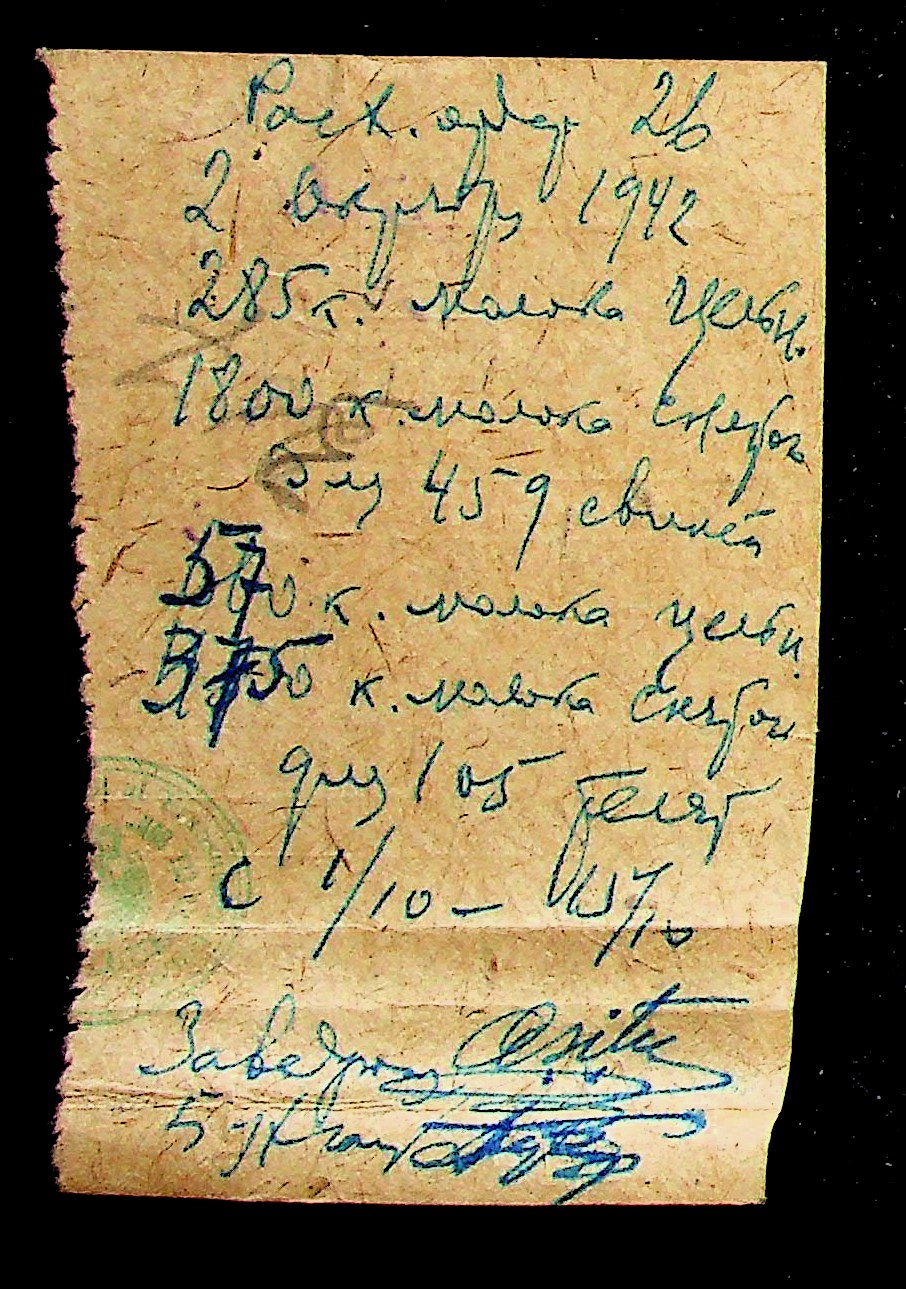 Расх. ордер 26
2 Октября 1942
285 к. молока цельн.
1800 к. молока снятого
для 459 свиней
570 к. молока цельн.
к. молока снятого
для 105 телят
с 1/10 — 15/10
Заведующ